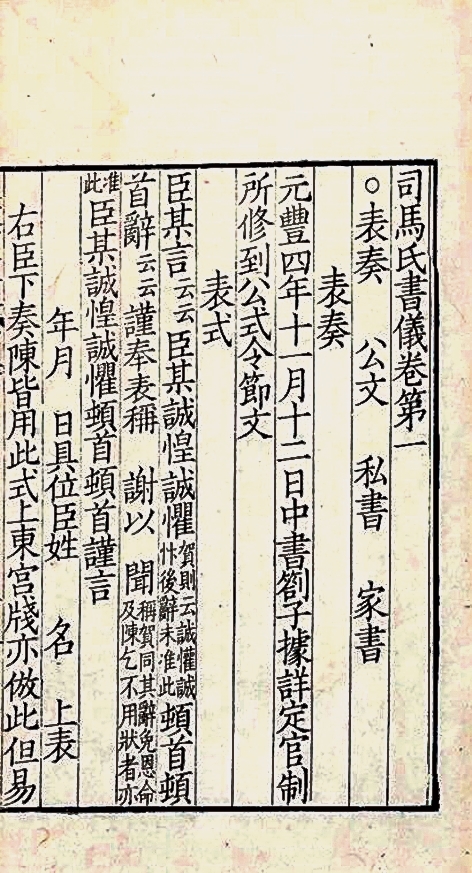 司馬氏書儀卷第一
○表奏 公文 私書 家書
表奏
元豐四年十一月十二日中書劄子據詳定官制
所修到公式令節文
表式
臣某言云云臣某誠惶誠懼賀則云誠懽誠忭後辭末准此頓首頓
首辭云云謹奉表稱 謝以 聞稱賀同其辭免恩命及陳乞不用狀者亦
准此臣某誠惶誠懼頓首頓首謹言
年月 日具位臣姓 名 上表
右臣下奏陳皆用此式上東宮牋亦倣此但易